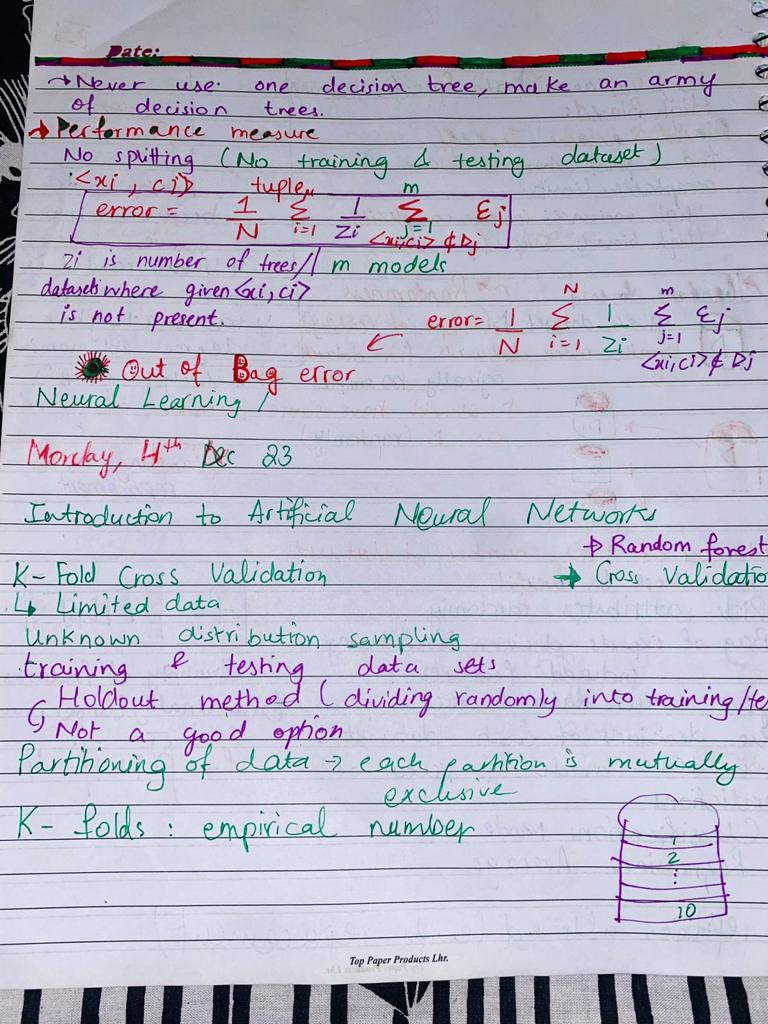 Date:
→ Never use one decision tree, make an army
of decision trees.
→ Performance measure
No splitting (No training & testing dataset)
<xi, ci> tuple
error = 1/N Σ i=1 1/Zi m Σ j=1 <xi,ci> ∉ Dj Ɛj
Zi is number of trees/ m models
datasets where given <xi, ci>
is not present.
error = 1/N N Σ i=1 1/Zi m Σ j=1 <xi,ci> ∉ Dj Ɛj
Out of Bag error
Neural Learning /
Monday, 4th Dec 23
Introduction to Artificial Neural Networks
→ Random forest
K-Fold Cross Validation → Cross Validatio
↳ Limited data
Unknown distribution sampling
training & testing data sets
Holdout method (dividing randomly into training/te
↳ Not a good option
Partitioning of data → each partition is mutually
exclusive
K-folds : empirical number
1
2
⋮
10
Top Paper Products Lhr.